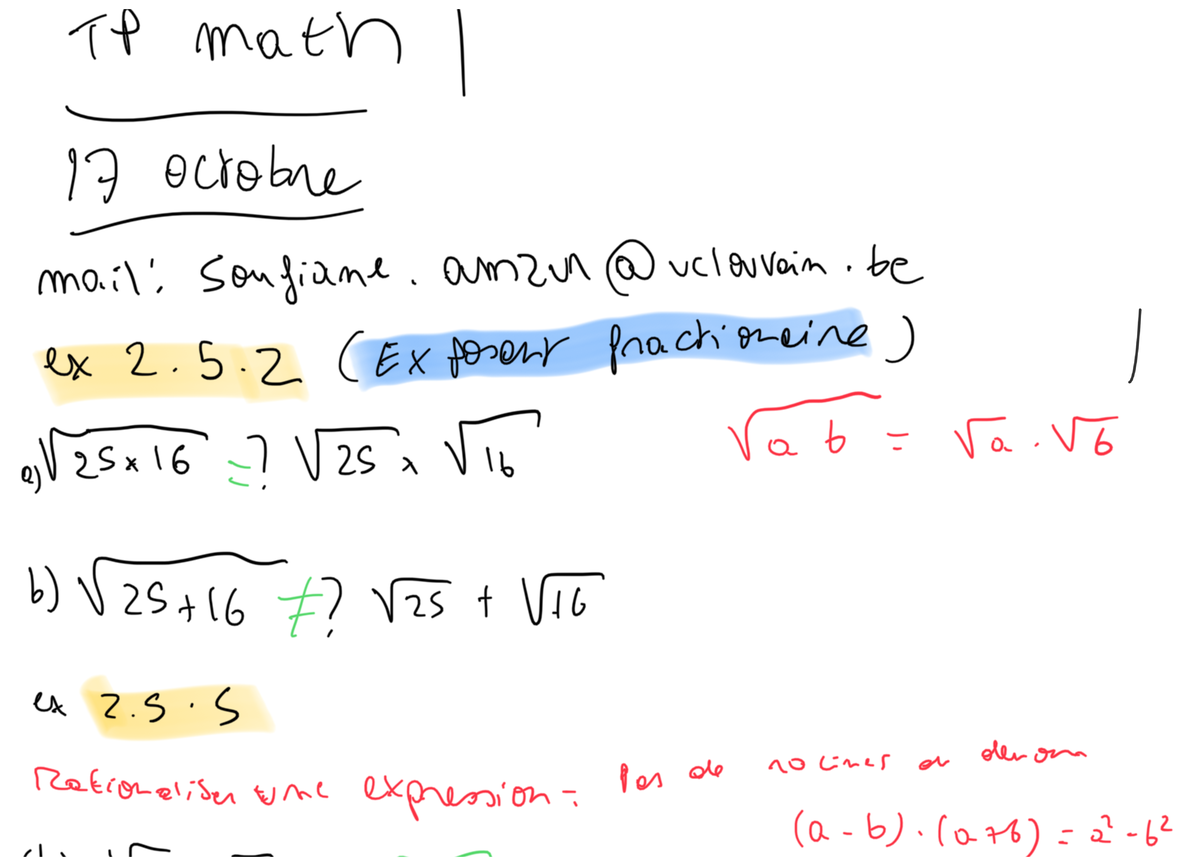 TP math
17 octobre
mail: Soufiane.amzur@uclouvain.be
ex 2.5.2 (Exposant fractionnaire)
a) √(25×16) =? √25 × √16
√(ab) = √a · √b
b) √(25+16) ≠? √25 + √16
ex 2.5.5
Rationaliser une expression = Pas de racines au dénom
(a-b)·(a+b) = a²-b²